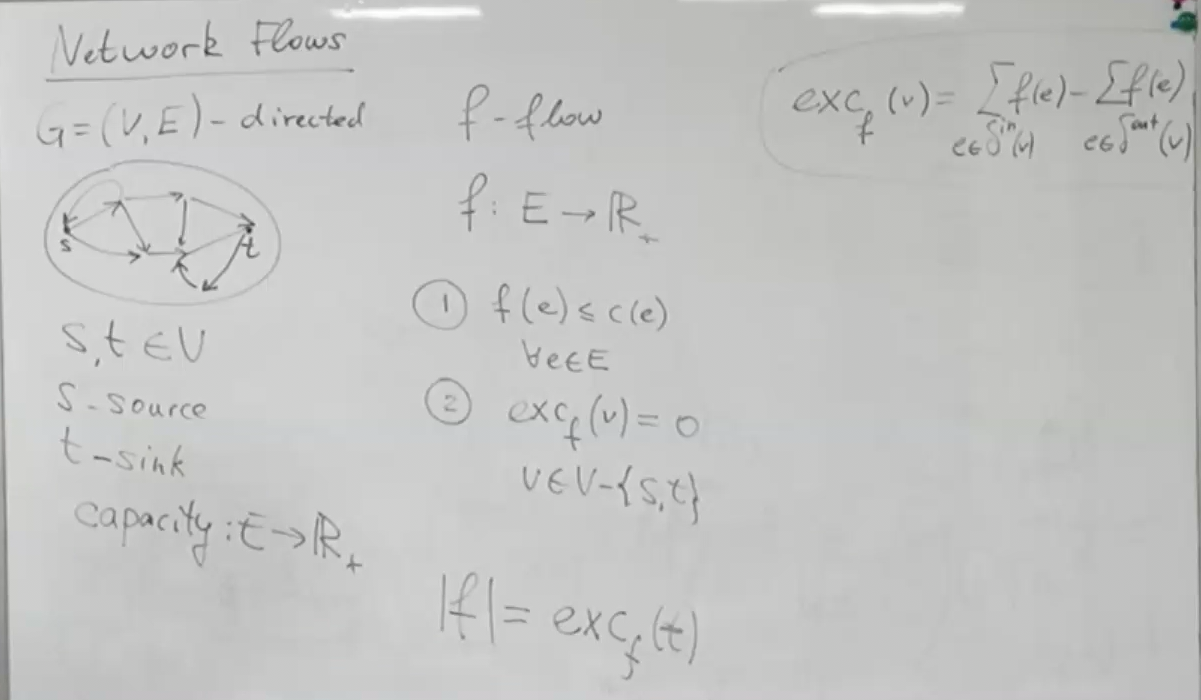 Network Flows
G=(V,E)-directed
s
t
s,t ∈ V
s-source
t-sink
capacity: E→ℝ₊
f-flow
f: E→ℝ₊
① f(e) ≤ c(e)
∀e∈E
② exc_f(v) = 0
v∈V-{s,t}
|f| = exc_f(t)
exc_f(v) = ∑f(e) - ∑f(e)
e∈δ^in(v) e∈δ^out(v)